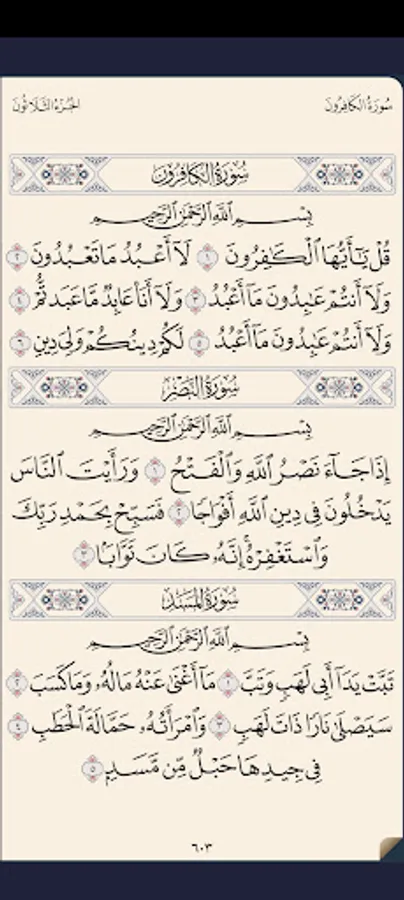 سُورَةُ الكَافِرُونَ الجُزْءُ الثَّلَاثُونَ
سُورَةُ الكَافِرُونَ
بِسْمِ اللَّهِ الرَّحْمَٰنِ الرَّحِيمِ
قُلْ يَٰٓأَيُّهَا ٱلْكَٰفِرُونَ ١ لَآ أَعْبُدُ مَا تَعْبُدُونَ ٢
وَلَآ أَنتُمْ عَٰبِدُونَ مَآ أَعْبُدُ ٣ وَلَآ أَنَا۠ عَابِدٌ مَّا عَبَدتُّمْ ٤
وَلَآ أَنتُمْ عَٰبِدُونَ مَآ أَعْبُدُ ٥ لَكُمْ دِينُكُمْ وَلِىَ دِينِ ٦
سُورَةُ النَّصْرِ
بِسْمِ اللَّهِ الرَّحْمَٰنِ الرَّحِيمِ
إِذَا جَآءَ نَصْرُ ٱللَّهِ وَٱلْفَتْحُ ١ وَرَأَيْتَ ٱلنَّاسَ
يَدْخُلُونَ فِى دِينِ ٱللَّهِ أَفْوَاجًا ٢ فَسَبِّحْ بِحَمْدِ رَبِّكَ
وَٱسْتَغْفِرْهُ ۚ إِنَّهُۥ كَانَ تَوَّابًۢا ٣
سُورَةُ المَسَدِ
بِسْمِ اللَّهِ الرَّحْمَٰنِ الرَّحِيمِ
تَبَّتْ يَدَآ أَبِى لَهَبٍ وَتَبَّ ١ مَآ أَغْنَىٰ عَنْهُ مَالُهُۥ وَمَا كَسَبَ ٢
سَيَصْلَىٰ نَارًا ذَاتَ لَهَبٍ ٣ وَٱمْرَأَتُهُۥ حَمَّالَةَ ٱلْحَطَبِ ٤
فِى جِيدِهَا حَبْلٌ مِّن مَّسَدٍۭ ٥
٦٠٣